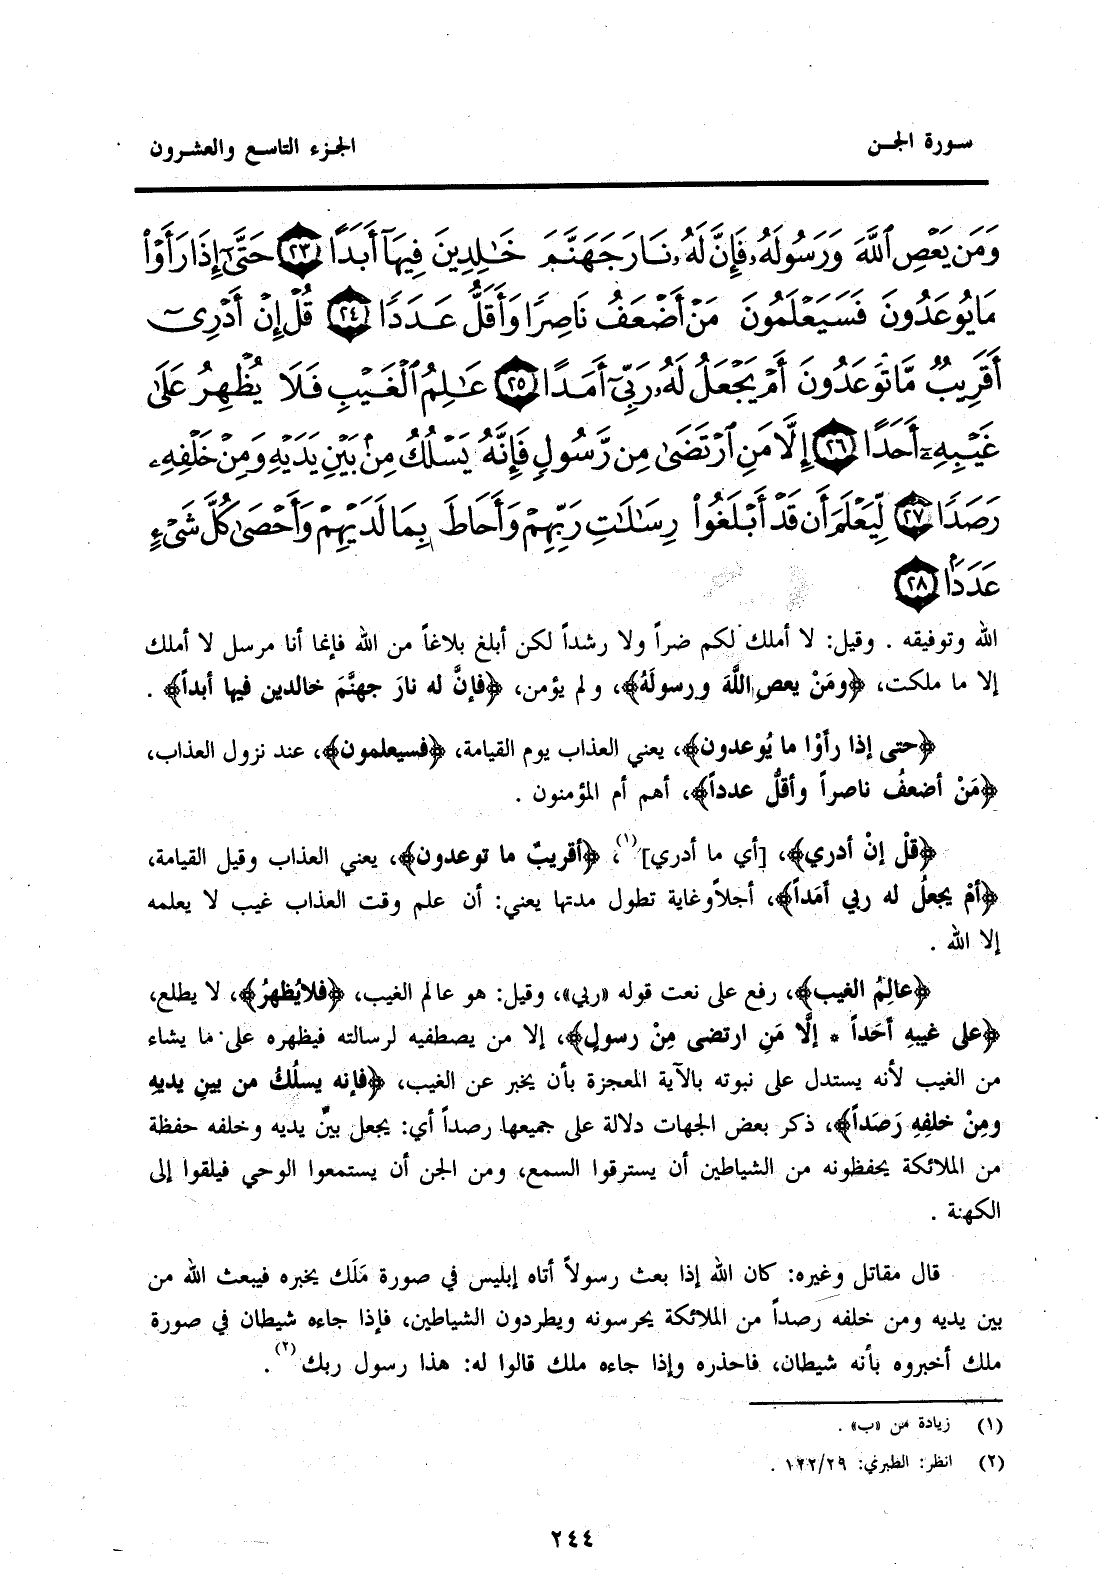 سورة الجن
الجزء التاسع والعشرون
وَمَن يَعْصِ ٱللَّهَ وَرَسُولَهُۥ فَإِنَّ لَهُۥ نَارَ جَهَنَّمَ خَٰلِدِينَ فِيهَآ أَبَدًا ٢٣ حَتَّىٰٓ إِذَا رَأَوْا۟
مَا يُوعَدُونَ فَسَيَعْلَمُونَ مَنْ أَضْعَفُ نَاصِرًا وَأَقَلُّ عَدَدًا ٢٤ قُلْ إِنْ أَدْرِىٓ
أَقَرِيبٌ مَّا تُوعَدُونَ أَمْ يَجْعَلُ لَهُۥ رَبِّىٓ أَمَدًا ٢٥ عَٰلِمُ ٱلْغَيْبِ فَلَا يُظْهِرُ عَلَىٰ
غَيْبِهِۦٓ أَحَدًا ٢٦ إِلَّا مَنِ ٱرْتَضَىٰ مِن رَّسُولٍ فَإِنَّهُۥ يَسْلُكُ مِنۢ بَيْنِ يَدَيْهِ وَمِنْ خَلْفِهِۦ
رَصَدًا ٢٧ لِّيَعْلَمَ أَن قَدْ أَبْلَغُوا۟ رِسَٰلَٰتِ رَبِّهِمْ وَأَحَاطَ بِمَا لَدَيْهِمْ وَأَحْصَىٰ كُلَّ شَىْءٍ
عَدَدًۢا ٢٨
الله وتوفيقه . وقيل: لا أملك لكم ضراً ولا رشداً لكن أبلغ بلاغاً من الله فإنما أنا مرسل لا أملك
إلا ما ملكت، ﴿ومَنْ يعصِ اللَّهَ ورسولَهُ﴾، ولم يؤمن، ﴿فإنَّ له نارَ جهنَّمَ خالدين فيها أبداً﴾ .
﴿حتى إذا رأَوْا ما يُوعدون﴾، يعني العذاب يوم القيامة، ﴿فسيعلمون﴾، عند نزول العذاب،
﴿مَنْ أضعفُ ناصراً وأقلُّ عدداً﴾، أهم أم المؤمنون .
﴿قُلْ إنْ أدري﴾، [أي ما أدري](١)، ﴿أقريبٌ ما توعدون﴾، يعني العذاب وقيل القيامة،
﴿أمْ يجعلُ له ربي أمَداً﴾، أجلاً وغاية تطول مدتها يعني: أن علم وقت العذاب غيب لا يعلمه
إلا الله .
﴿عالِمُ الغيب﴾، رفع على نعت قوله «ربي»، وقيل: هو عالم الغيب، ﴿فلا يُظهرُ﴾، لا يطلع،
﴿على غيبهِ أحَداً * إلَّا مَنِ ارتضى مِنْ رسولٍ﴾، إلا من يصطفيه لرسالته فيظهره على ما يشاء
من الغيب لأنه يستدل على نبوته بالآية المعجزة بأن يخبر عن الغيب، ﴿فإنه يسلُكُ من بينِ يديهِ
ومِنْ خلفِهِ رَصَداً﴾، ذكر بعض الجهات دلالة على جميعها رصداً أي: يجعل بين يديه وخلفه حفظة
من الملائكة يحفظونه من الشياطين أن يسترقوا السمع، ومن الجن أن يستمعوا الوحي فيلقوا إلى
الكهنة .
قال مقاتل وغيره: كان الله إذا بعث رسولاً أتاه إبليس في صورة مَلَك يخبره فيبعث الله من
بين يديه ومن خلفه رصداً من الملائكة يحرسونه ويطردون الشياطين، فإذا جاءه شيطان في صورة
ملك أخبروه بأنه شيطان، فاحذره وإذا جاءه ملك قالوا له: هذا رسول ربك(٢) .
(١) زيادة من «ب» .
(٢) انظر: الطبري: ٢٩/١٢٢ .
٢٤٤